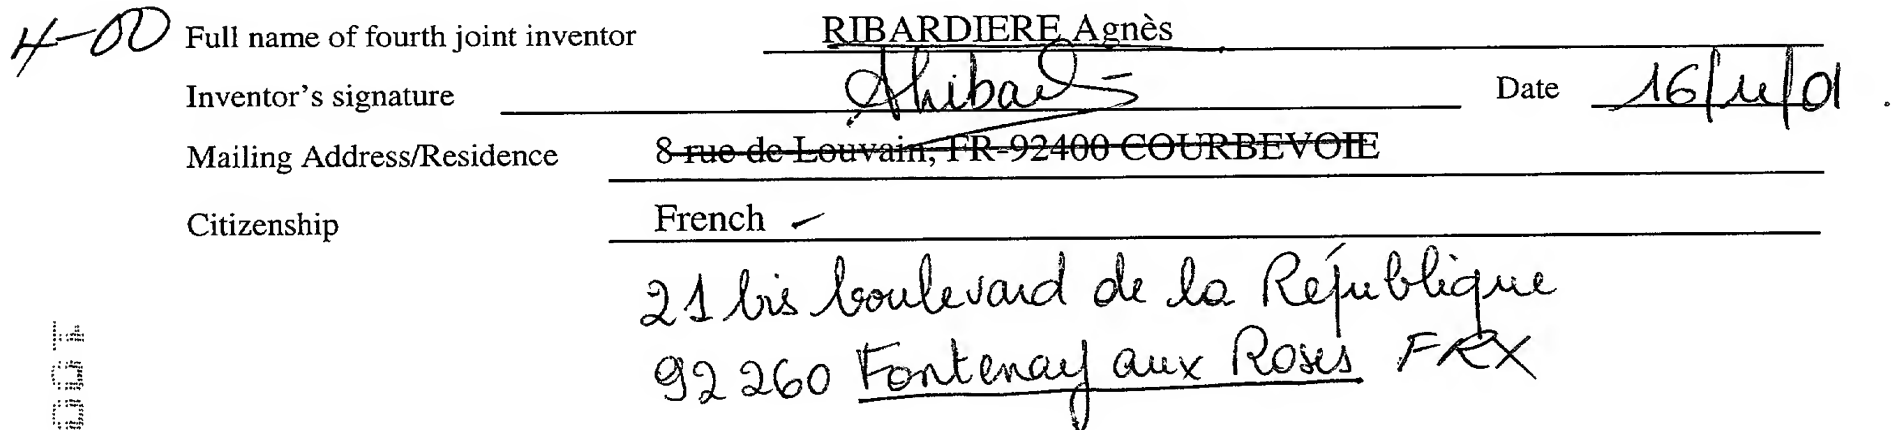 4-00 Full name of fourth joint inventor RIBARDIERE Agnès
Inventor's signature Date 16/11/01
Mailing Address/Residence 8 rue de Louvain, FR-92400 COURBEVOIE
Citizenship French
21 bis boulevard de la République
92 260 Fontenay aux Roses FRX